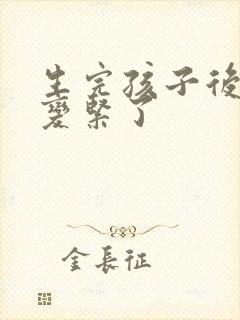 生完孩子後
變緊了
金長征